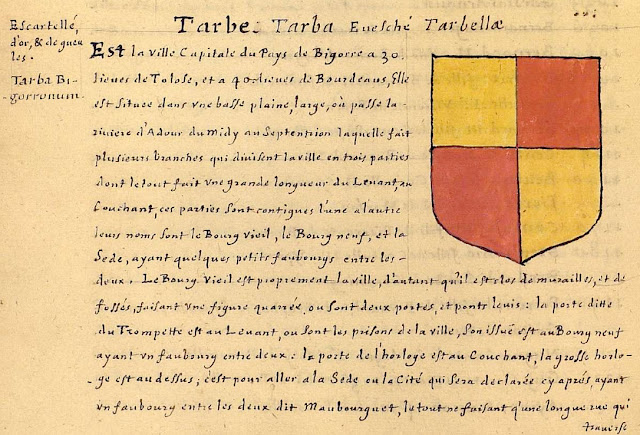 Tarbe: Tarba Euesché Tarbellæ
Escartellé,
d'or, & de gueu
les.
Tarba Bi-
gorronum.
Est la ville Capitale du Pays de Bigorre a 30
lieues de Tolose, et a 40 lieues de Bourdeaus, Elle
est situee dans vne basse plaine, large, où passe la
riviere d'Adour du Midy au Septentrion laquelle fait
plusieurs branches qui divisent la ville en trois parties
dont le tout fait vne grande longueur du Leuant, au
Couchant, ces parties sont contigues l'une a lautre
leurs noms sont le Bourg vieil, le Bourg neuf, et la
Sede, ayant quelques petits faubourgs entre les-
deux. Le Bourg Vieil est proprement la ville, d'autant qu'il est clos de murailles, et de
fossés, faisant vne figure quarrée, ou sont deux portes, et ponts leuis: la porte ditte
du Trompette est au Leuant, ou sont les prisons de la ville, son issuë est au Bourg neuf
ayant vn faubourg entre deux: la porte de l'horloge est au Couchant, la grosse horlo-
ge est au dessus; c'est pour aller a la Sede ou la Cité qui sera declarée cy aprés, ayant
vn faubourg entre les deux dit Maubourguet, le tout ne faisant q'une longue rue qui
traverse